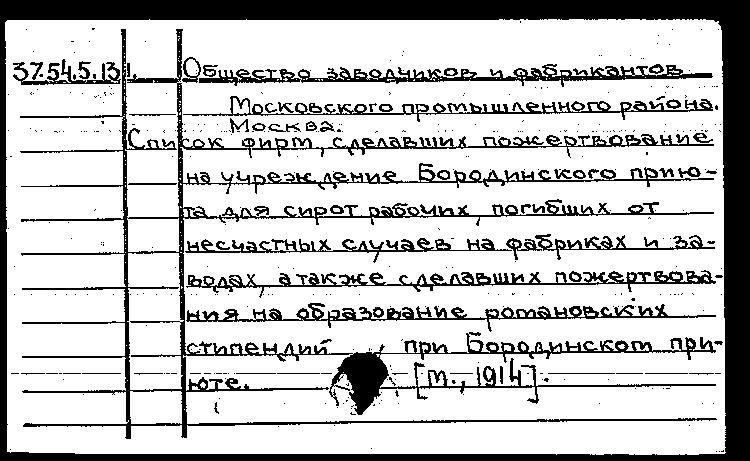 37.54.5.13 1. Общество заводчиков и фабрикантов
Московского промышленного района.
Москва.
Список фирм, сделавших пожертвование
на учреждение Бородинского прию-
та для сирот рабочих, погибших от
несчастных случаев на фабриках и за-
водах, а также сделавших пожертвова-
ния на образование романовских
стипендий при Бородинском при-
юте. [М., 1914].